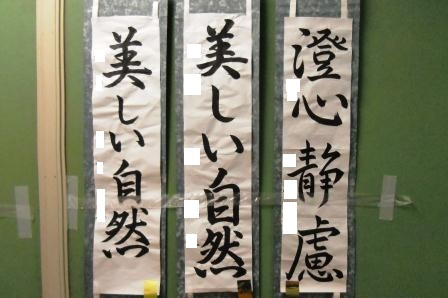 澄心静慮
美しい自然
美しい自然